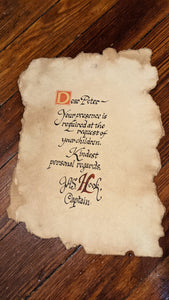 Dear Peter—
Your presence is
required at the
request of
your children.
Kindest
personal regards,
Jas. Hook
Captain